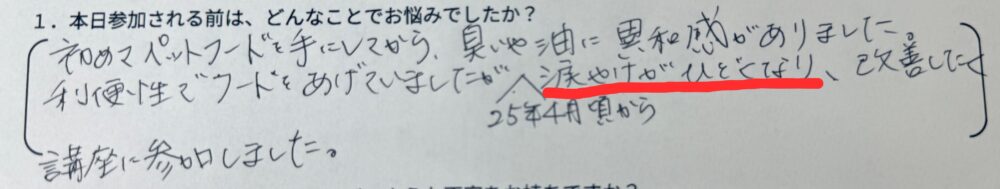 1. 本日参加される前は、どんなことでお悩みでしたか？
初めてペットフードを手にしてから、臭いや油に異和感がありました。
利便性でフードをあげていましたが涙やけがひどくなり、改善したく
25年4月頃から
講座に参加しました。